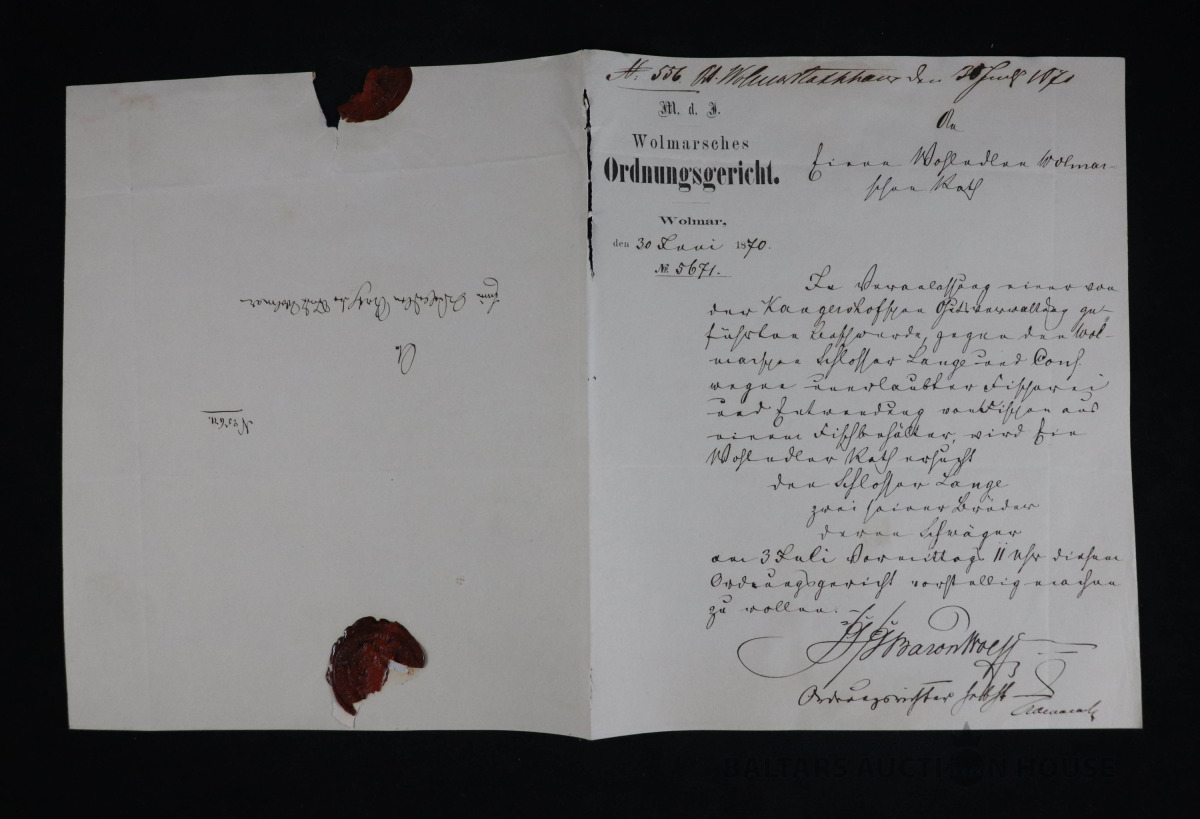 № 556. Pd. Wolmar Rathhaus den 30 Juni 1870
M. d. J.
Wolmarsches
Ordnungsgericht.
Wolmar,
den 30 Juni 1870.
№ 5671.
An
Einen Wohledlen Wolmar-
schen Rath
In Veranlassung einer von
der Kangershofschen Gutsverwaltung ge-
führten Beschwerde, gegen den Wol-
marschen Schlosser Lange und Cons.
wegen unerlaubter Fischerei
und Entwendung von Fischen aus
einem Fischbehälter, wird Ein
Wohledler Rath ersucht
den Schlosser Lange
zwei seiner Brüder
deren Schwäger
am 3 Juli Vormittags 11 Uhr diesem
Ordnungsgericht vorstellig machen
zu wollen.
Baron Wolff
Ordnungsrichter
An
Einen Wohledlen Rath der Stadt Wolmar
№ 5671.
BALTARS AUCTION HOUSE